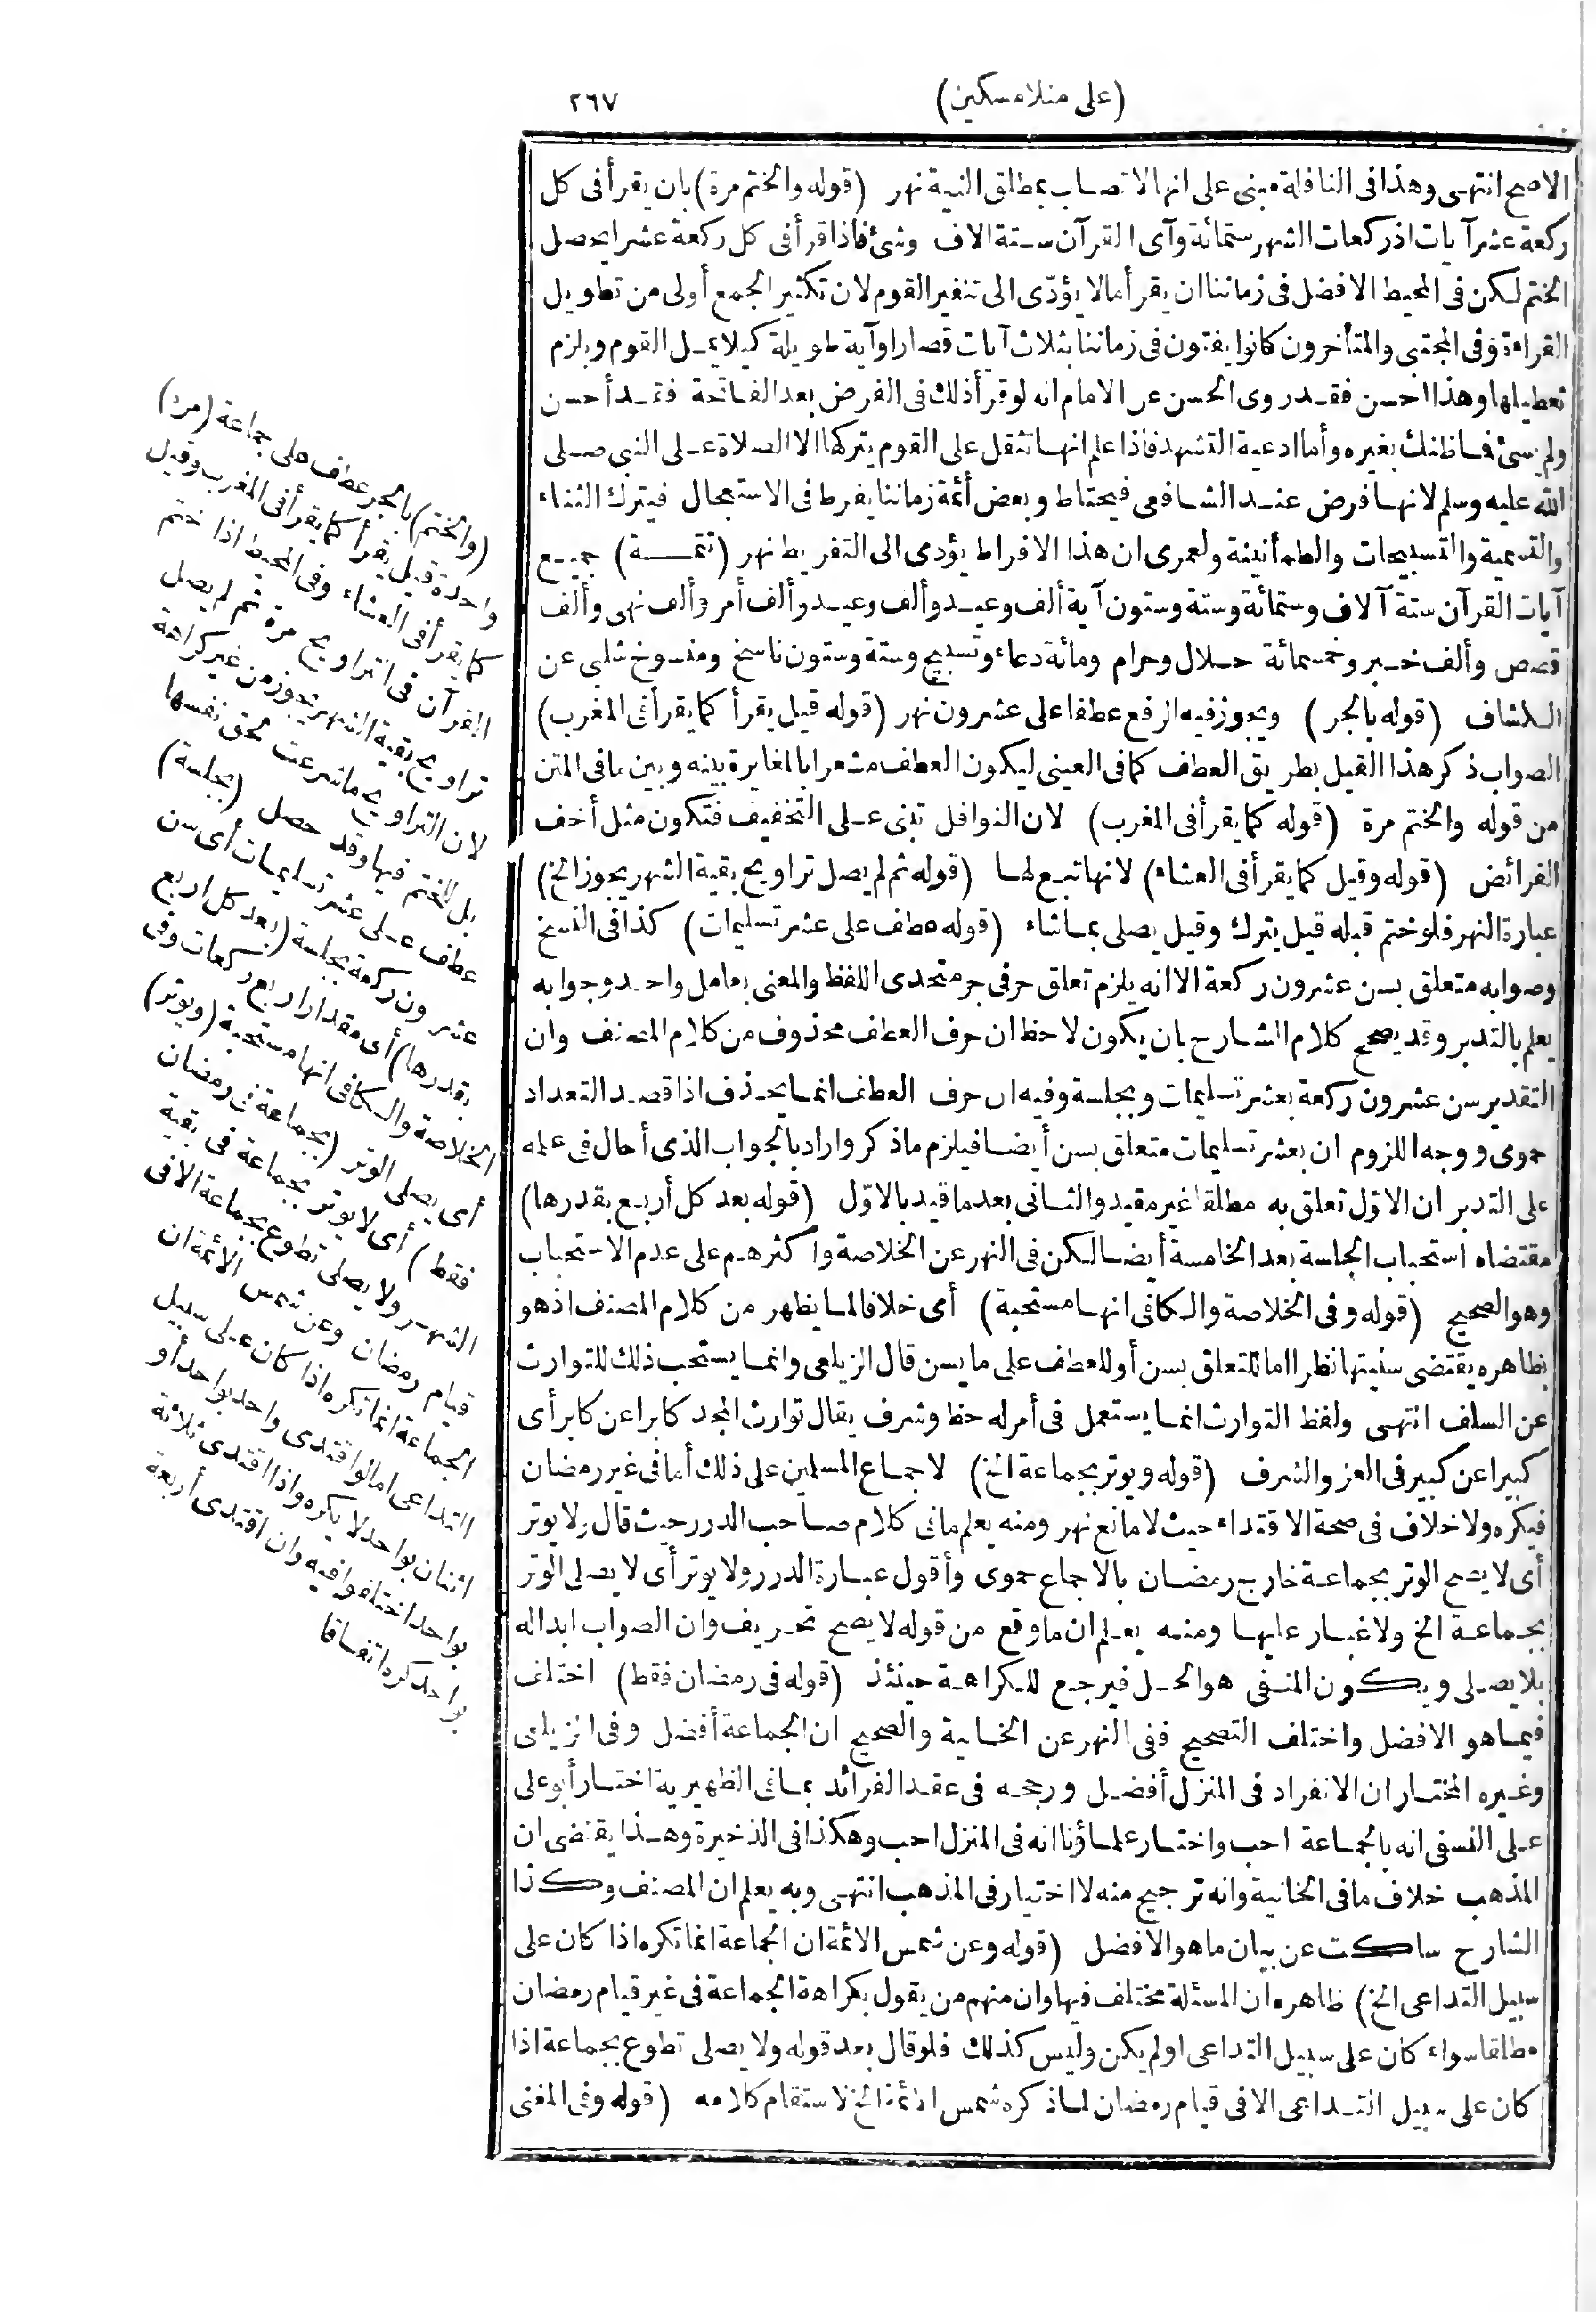 (على منلا مسكين)
٢٦٧
الاصح انتهى وهذا فى النافلة مبنى على انها لا تصاب بمطلق النية نهر (قوله والختم مرة) بان يقرأ فى كل
ركعة عشر آيات اذ ركعات الشهر ستمائة وآى القرآن ستة الاف وشئ فاذا قرأ فى كل ركعة عشرا يحصل
الختم لكن فى المحيط الافضل فى زماننا ان يقرأ مالا يؤدّى الى تنفير القوم لان تكثير الجمع أولى من تطويل
القراءة وفى المجتبى والمتأخرون كانوا يفتون فى زماننا بثلاث آيات قصار اوآية طويلة كيلا يمل القوم ويلزم
تعطيلها وهذا احسن فقد روى الحسن عن الامام انه لوقرأ ذلك فى الفرض بعد الفاتحة فقد أحسن
ولم يسئ فما ظنك بغيره وأما ادعية التشهد فاذا علم انها تثقل على القوم يتركها الا الصلاة على النبى صلى
الله عليه وسلم لانها فرض عند الشافعى فيحتاط وبعض أئمة زماننا يفرط فى الاستعجال فيترك الثناء
والتسمية والتسبيحات والطمأنينة ولعمرى ان هذا الافراط يؤدى الى التفريط نهر (تتمة) جميع
آيات القرآن ستة آلاف وستمائة وستة وستون آية ألف وعيد وألف وعيد وألف أمر وألف نهى وألف
قصص وألف خبر وخمسمائة حلال وحرام ومائة دعاء وتسبيح وستة وستون ناسخ ومنسوخ شلبى عن
الكشاف (قوله بالجر) ويجوز فيه الرفع عطفا على عشرون نهر (قوله قيل يقرأ كما يقرأ فى المغرب)
الصواب ذكر هذا القيل بطريق العطف كما فى العينى ليكون العطف مشعرا بالمغايرة بينه وبين ما فى المتن
من قوله والختم مرة (قوله كما يقرأ فى المغرب) لان النوافل تبنى على التخفيف فتكون مثل أخف
الفرائض (قوله وقيل كما يقرأ فى العشاء) لانها تبع لها (قوله ثم لم يصل تراويح بقية الشهر يجوز الخ)
عبارة النهر فلو ختم قبله قيل يترك وقيل يصلى بما شاء (قوله عطف على عشر تسليمات) كذا فى النسخ
وصوابه متعلق بسن عشرون ركعة الا انه يلزم تعلق حرفى جر متحدى اللفظ والمعنى بعامل واحد وجوابه
يعلم بالتدبر وقد يصحح كلام الشارح بان يكون لاحظ ان حرف العطف محذوف من كلام المصنف وان
التقدير سن عشرون ركعة بعشر تسليمات وبجلسة وفيه ان حرف العطف انما يحذف اذا قصد التعداد
حموى ووجه اللزوم ان بعشر تسليمات متعلق بسن أيضا فيلزم ما ذكر واراد بالجواب الذى أحال فى علمه
على التدبر ان الاوّل تعلق به مطلقا غير مقيد والثانى بعد ما قيد بالاوّل (قوله بعد كل أربع بقدرها)
مقتضاه استحباب الجلسة بعد الخامسة أيضا لكن فى النهر عن الخلاصة واكثرهم على عدم الاستحباب
وهو الصحيح (قوله وفى الخلاصة والكافى انها مستحبة) أى خلافا لما يظهر من كلام المصنف اذ هو
بظاهره يقتضى سنيتها نظرا اما للتعلق بسن أو للعطف على ما يسن قال الزيلعى وانما يستحب ذلك للتوارث
عن السلف انتهى ولفظ التوارث انما يستعمل فى أمر له حظ وشرف يقال توارث المجد كابرا عن كابر أى
كبيرا عن كبير فى العز والشرف (قوله ويوتر بجماعة الخ) لاجماع المسلمين على ذلك أما فى غير رمضان
فيكره ولا خلاف فى صحة الاقتداء حيث لا مانع نهر ومنه يعلم ما فى كلام صاحب الدرر حيث قال ولا يوتر
أى لا يصح الوتر بجماعة خارج رمضان بالاجماع حموى وأقول عبارة الدرر ولا يوتر أى لا يصلى الوتر
بجماعة الخ ولا غبار عليها ومنه يعلم ان ما وقع من قوله لا يصح تحريف وان الصواب ابداله
بلا يصلى ويكون المنفى هو الحل فيرجع للكراهة حينئذ (قوله فى رمضان فقط) اختلف
فيما هو الافضل واختلف التصحيح ففى النهر عن الخانية والصحيح ان الجماعة أفضل وفى الزيلعى
وغيره المختار ان الانفراد فى المنزل أفضل ورجحه فى عقد الفرائد بما فى الظهيرية اختار أبو على
على النسفى انه بالجماعة احب واختار علماؤنا انه فى المنزل احب وهكذا فى الذخيرة وهذا يقتضى ان
المذهب خلاف ما فى الخانية وانه ترجيح منه لا اختيار فى المذهب انتهى وبه يعلم ان المصنف وكذا
الشارح ساكت عن بيان ما هو الافضل (قوله وعن شمس الائمة ان الجماعة انما تكره اذا كان على
سبيل التداعى الخ) ظاهره ان المسئلة مختلف فيها وان منهم من يقول بكراهة الجماعة فى غير قيام رمضان
مطلقا سواء كان على سبيل التداعى اولم يكن وليس كذلك فلو قال بعد قوله ولا يصلى تطوع بجماعة اذا
كان على سبيل التداعى الا فى قيام رمضان لما ذكره شمس الائمة الخ لاستقام كلامه (قوله وفى المغنى
(والختم) بالجر عطف على جماعة (مرة)
واحدة قيل يقرأ كما يقرأ فى المغرب وقيل
كما يقرأ فى العشاء وفى المحيط اذا ختم
القرآن فى التراويح مرة ثم لم يصل
تراويح بقية الشهر يجوز من غير كراهة
لان التراويح ما شرعت لحق نفسها
بل للختم فيها وقد حصل (بجلسة)
عطف على عشر تسليمات أى سن
عشرون ركعة بجلسة (بعد كل اربع
بقدرها) أى مقدار اربع ركعات وفى
الخلاصة والكافى انها مستحبة (ويوتر)
أى يصلى الوتر (بجماعة فى رمضان
فقط) أى لا يوتر بجماعة فى بقية
الشهر ولا يصلى تطوع بجماعة الا فى
قيام رمضان وعن شمس الائمة ان
الجماعة انما تكره اذا كان على سبيل
التداعى اما لو اقتدى واحد بواحد أو
اثنان بواحد لا يكره واذا اقتدى ثلاثة
بواحد اختلفوا فيه وان اقتدى أربعة
بواحد كره اتفاقا